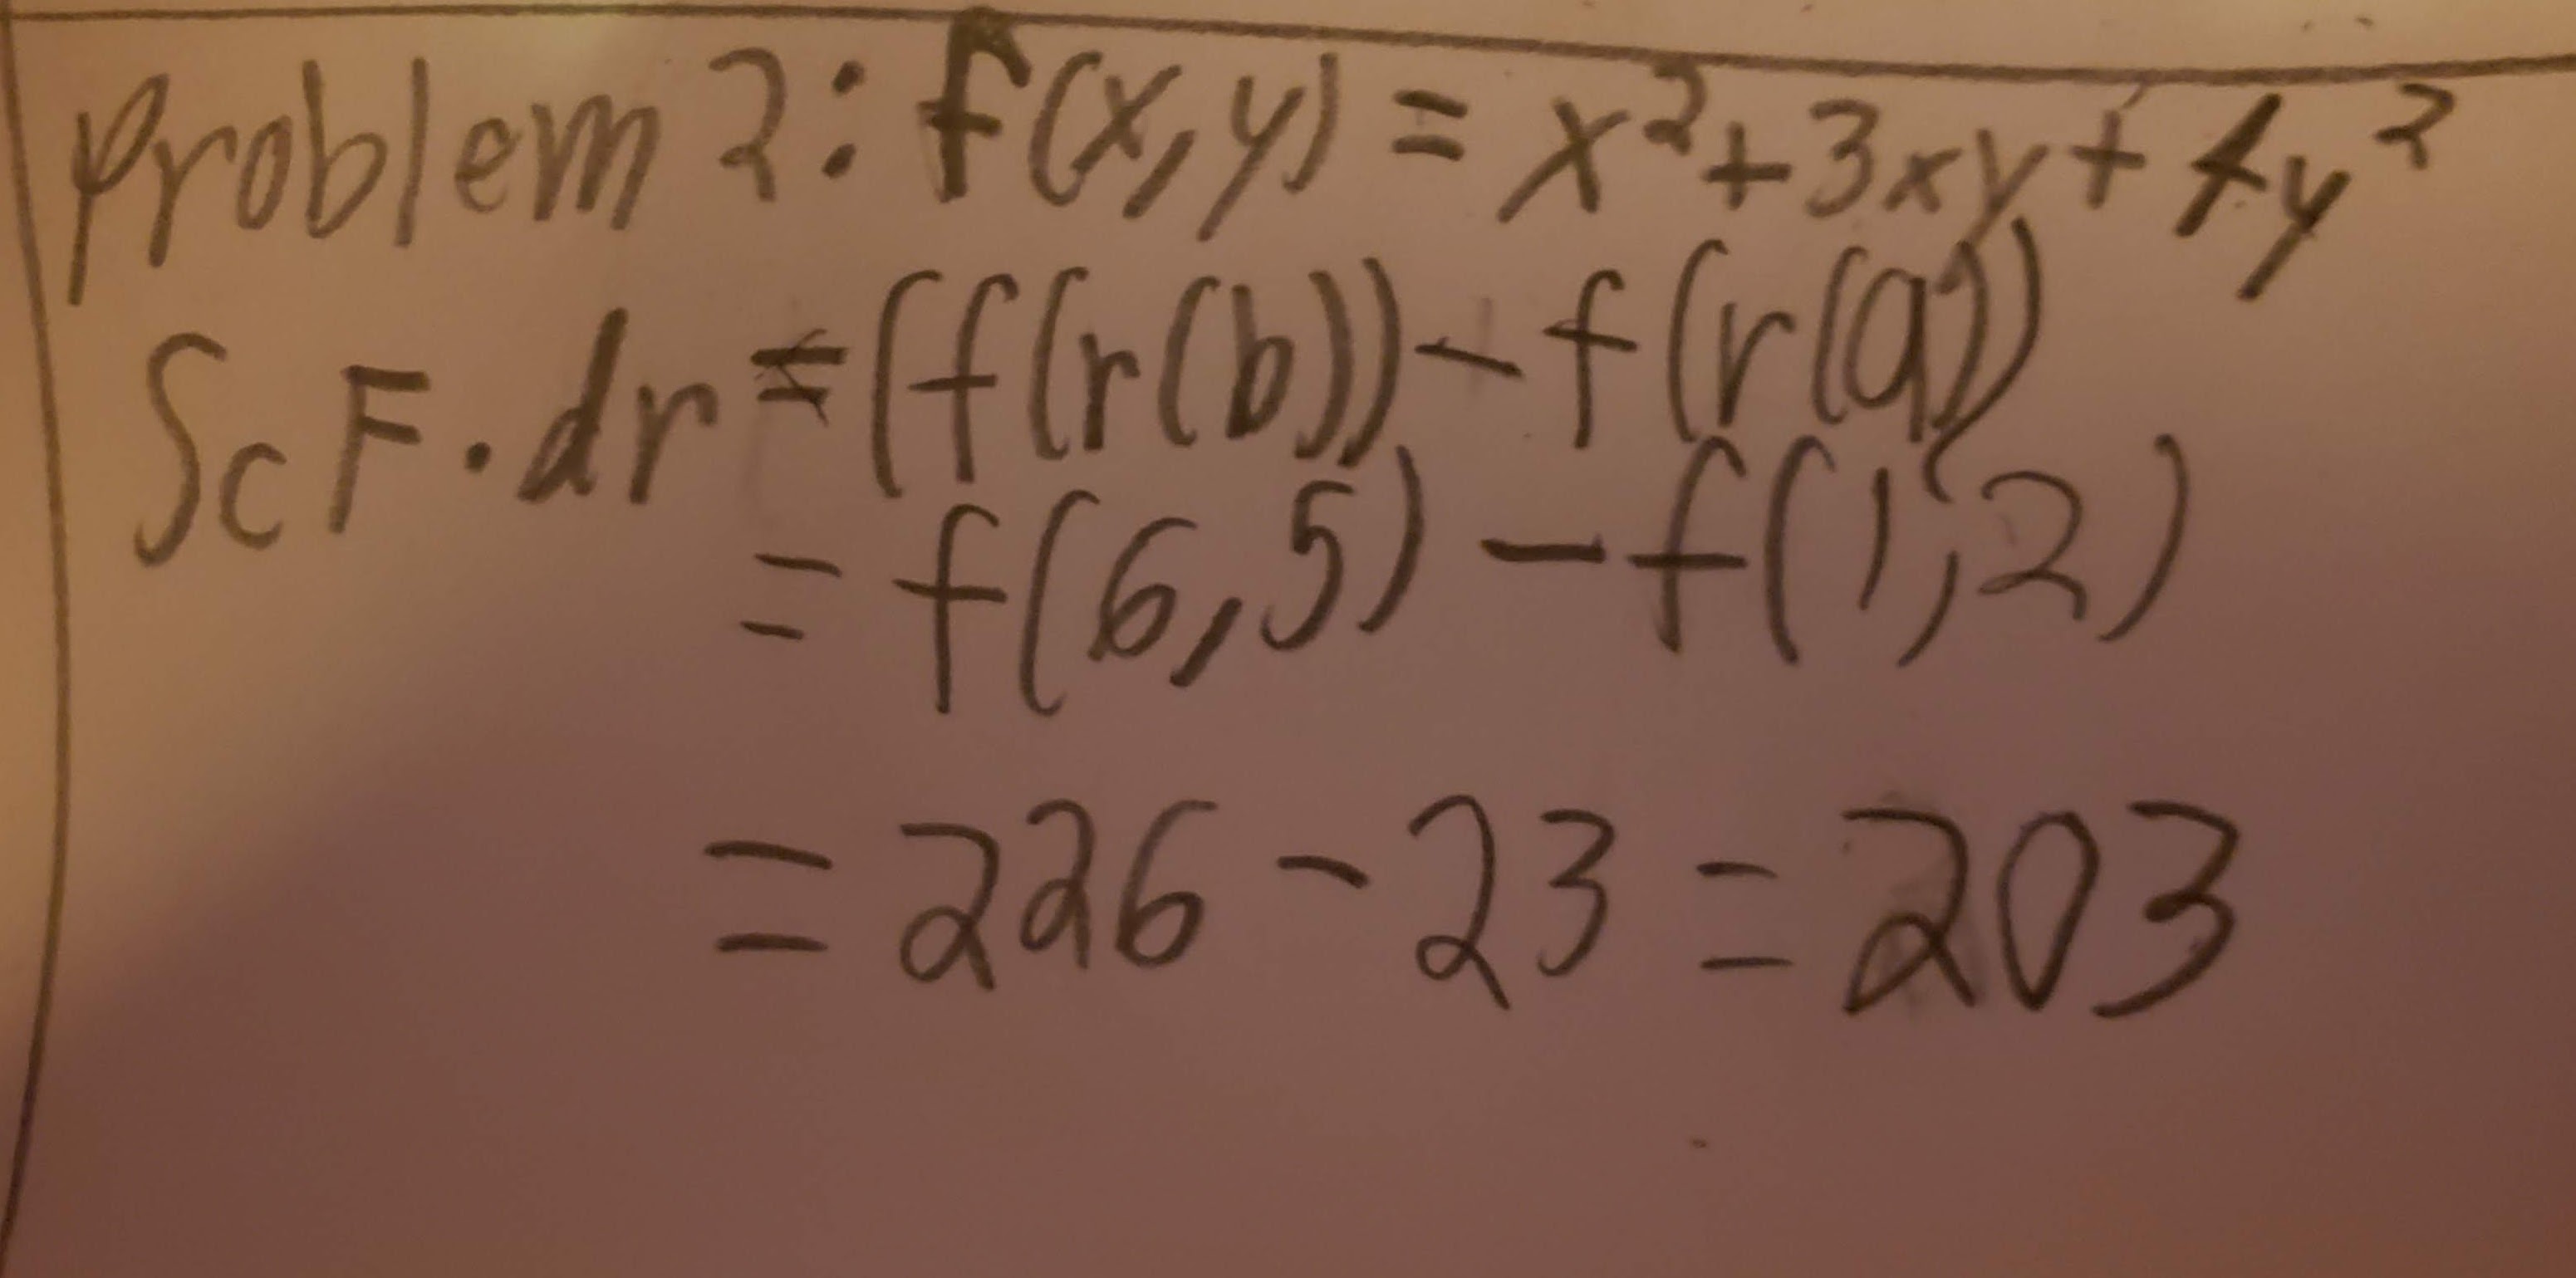 Problem 2: f(x,y) = x²+3xy+4y²
∫c F·dr = (f(r(b))-f(r(a))
= f(6,5) - f(1,2)
= 226 - 23 = 203